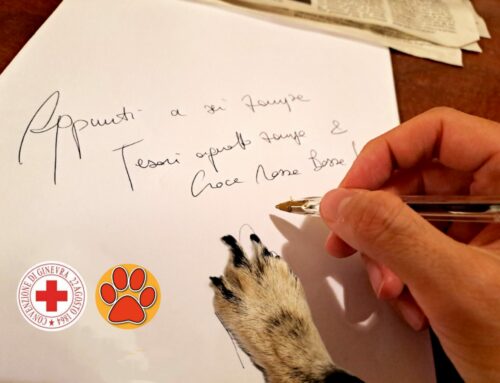 Appunti a sei zampe
Tesori a quattro zampe &
Croce Rossa Bosa!
CONVENZIONE DI GINEVRA 22 AGOSTO 1864